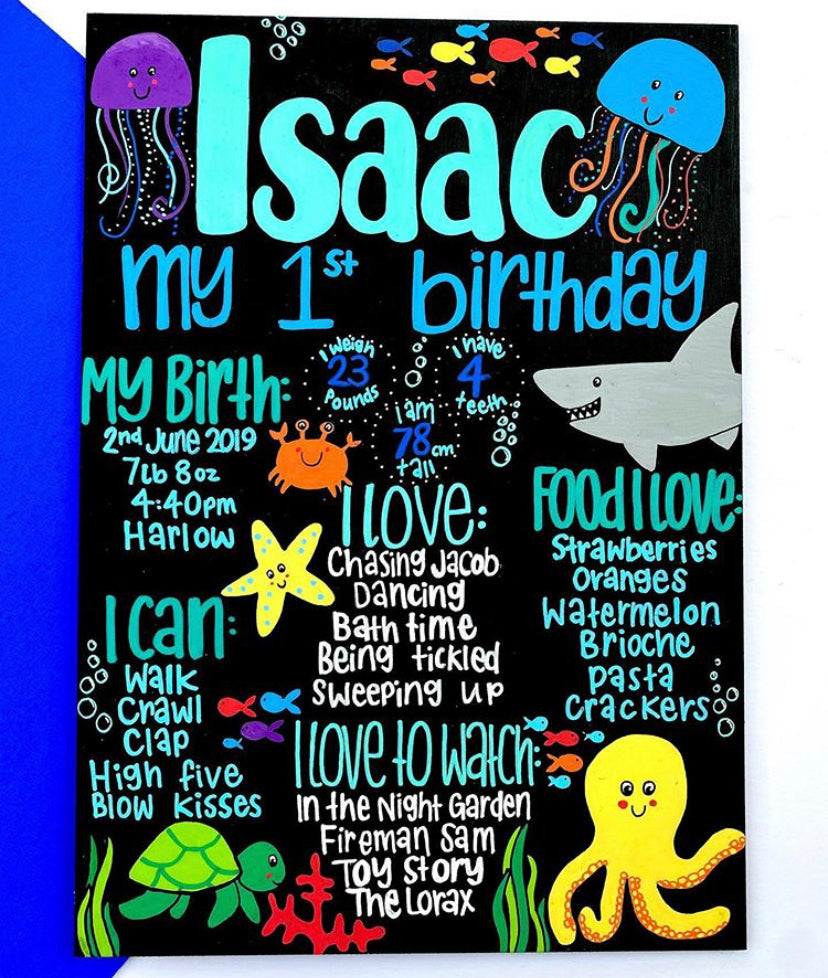 Isaac
my 1st birthday
My Birth:
2nd June 2019
7lb 8oz
4:40pm
Harlow
I weigh
23
Pounds
I have
4
teeth
I am
78cm
tall
I LOVE:
Chasing Jacob
Dancing
Bath time
Being tickled
Sweeping up
Food I Love:
Strawberries
Oranges
Watermelon
Brioche
Pasta
Crackers
I can:
Walk
Crawl
Clap
High five
Blow kisses
I Love to Watch:
In the Night Garden
Fireman Sam
Toy Story
The Lorax